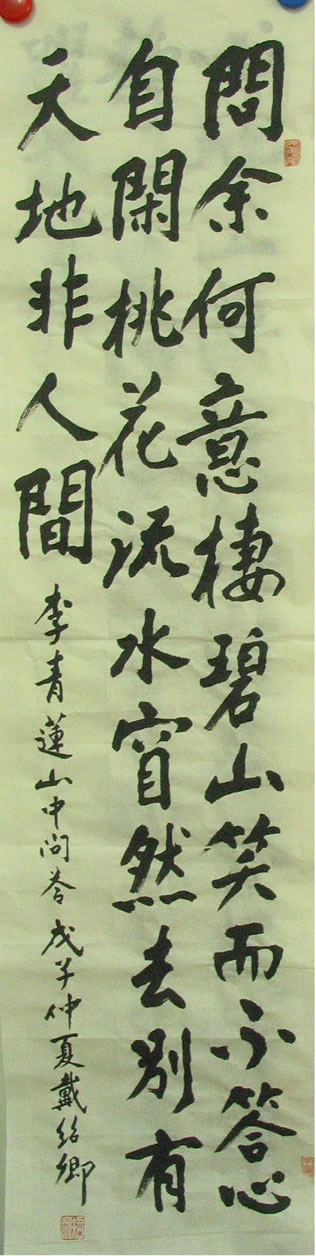 問余何意棲碧山笑而不答心
自閑桃花流水窅然去別有
天地非人間
李青蓮山中问答戊子仲夏戴紹卿